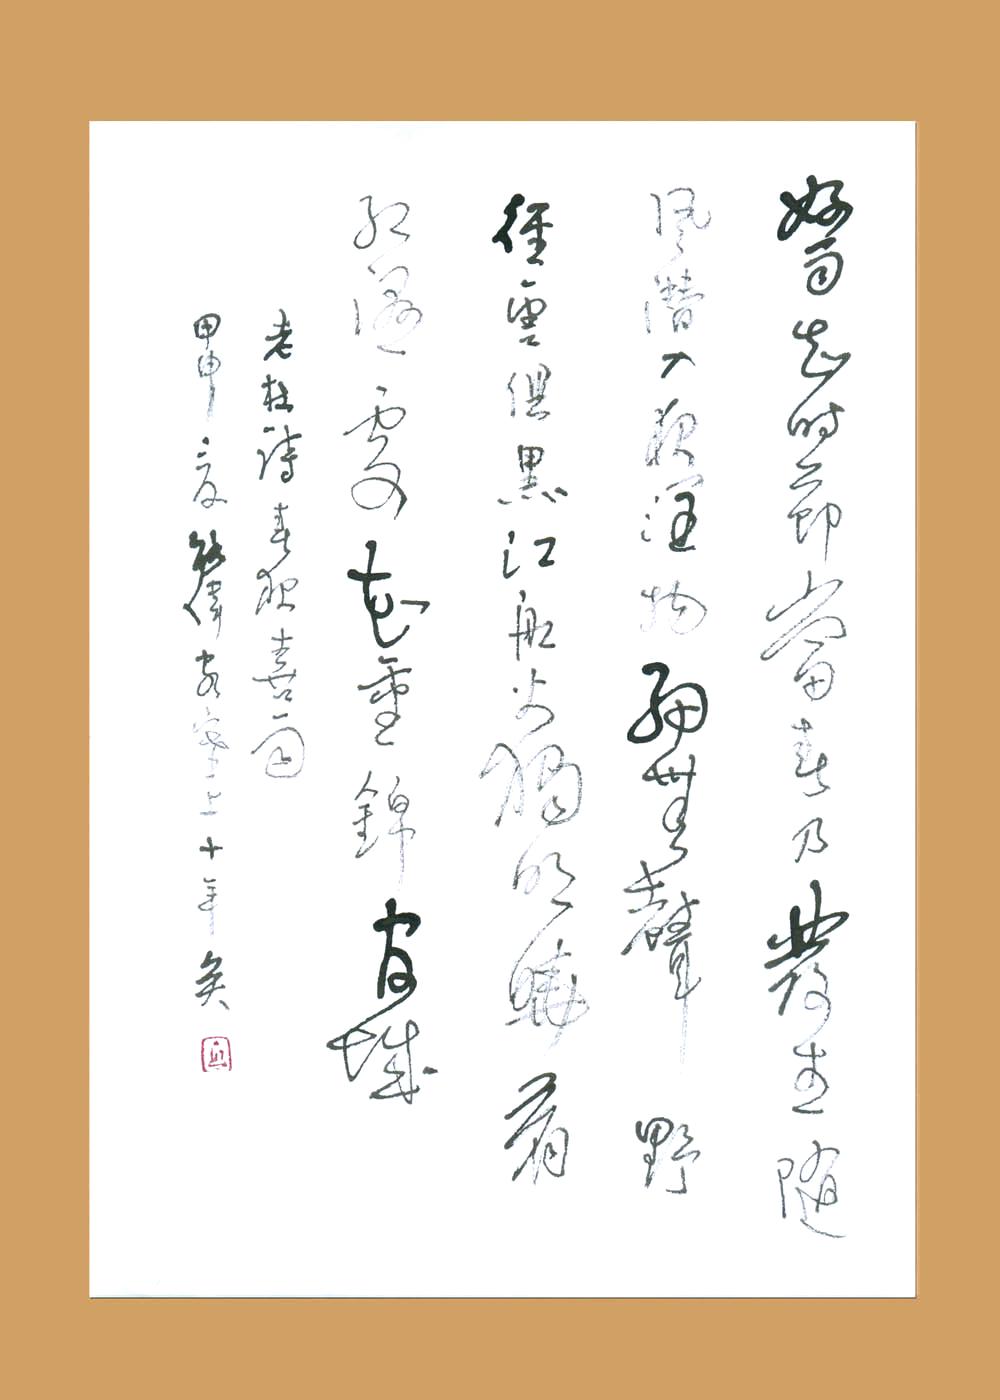 好雨知时节當春乃發生隨
风潛入夜潤物細無聲野
徑雲俱黑江船火獨明曉看
紅濕處花重錦官城
老杜诗春夜喜雨
甲申
上十年矣